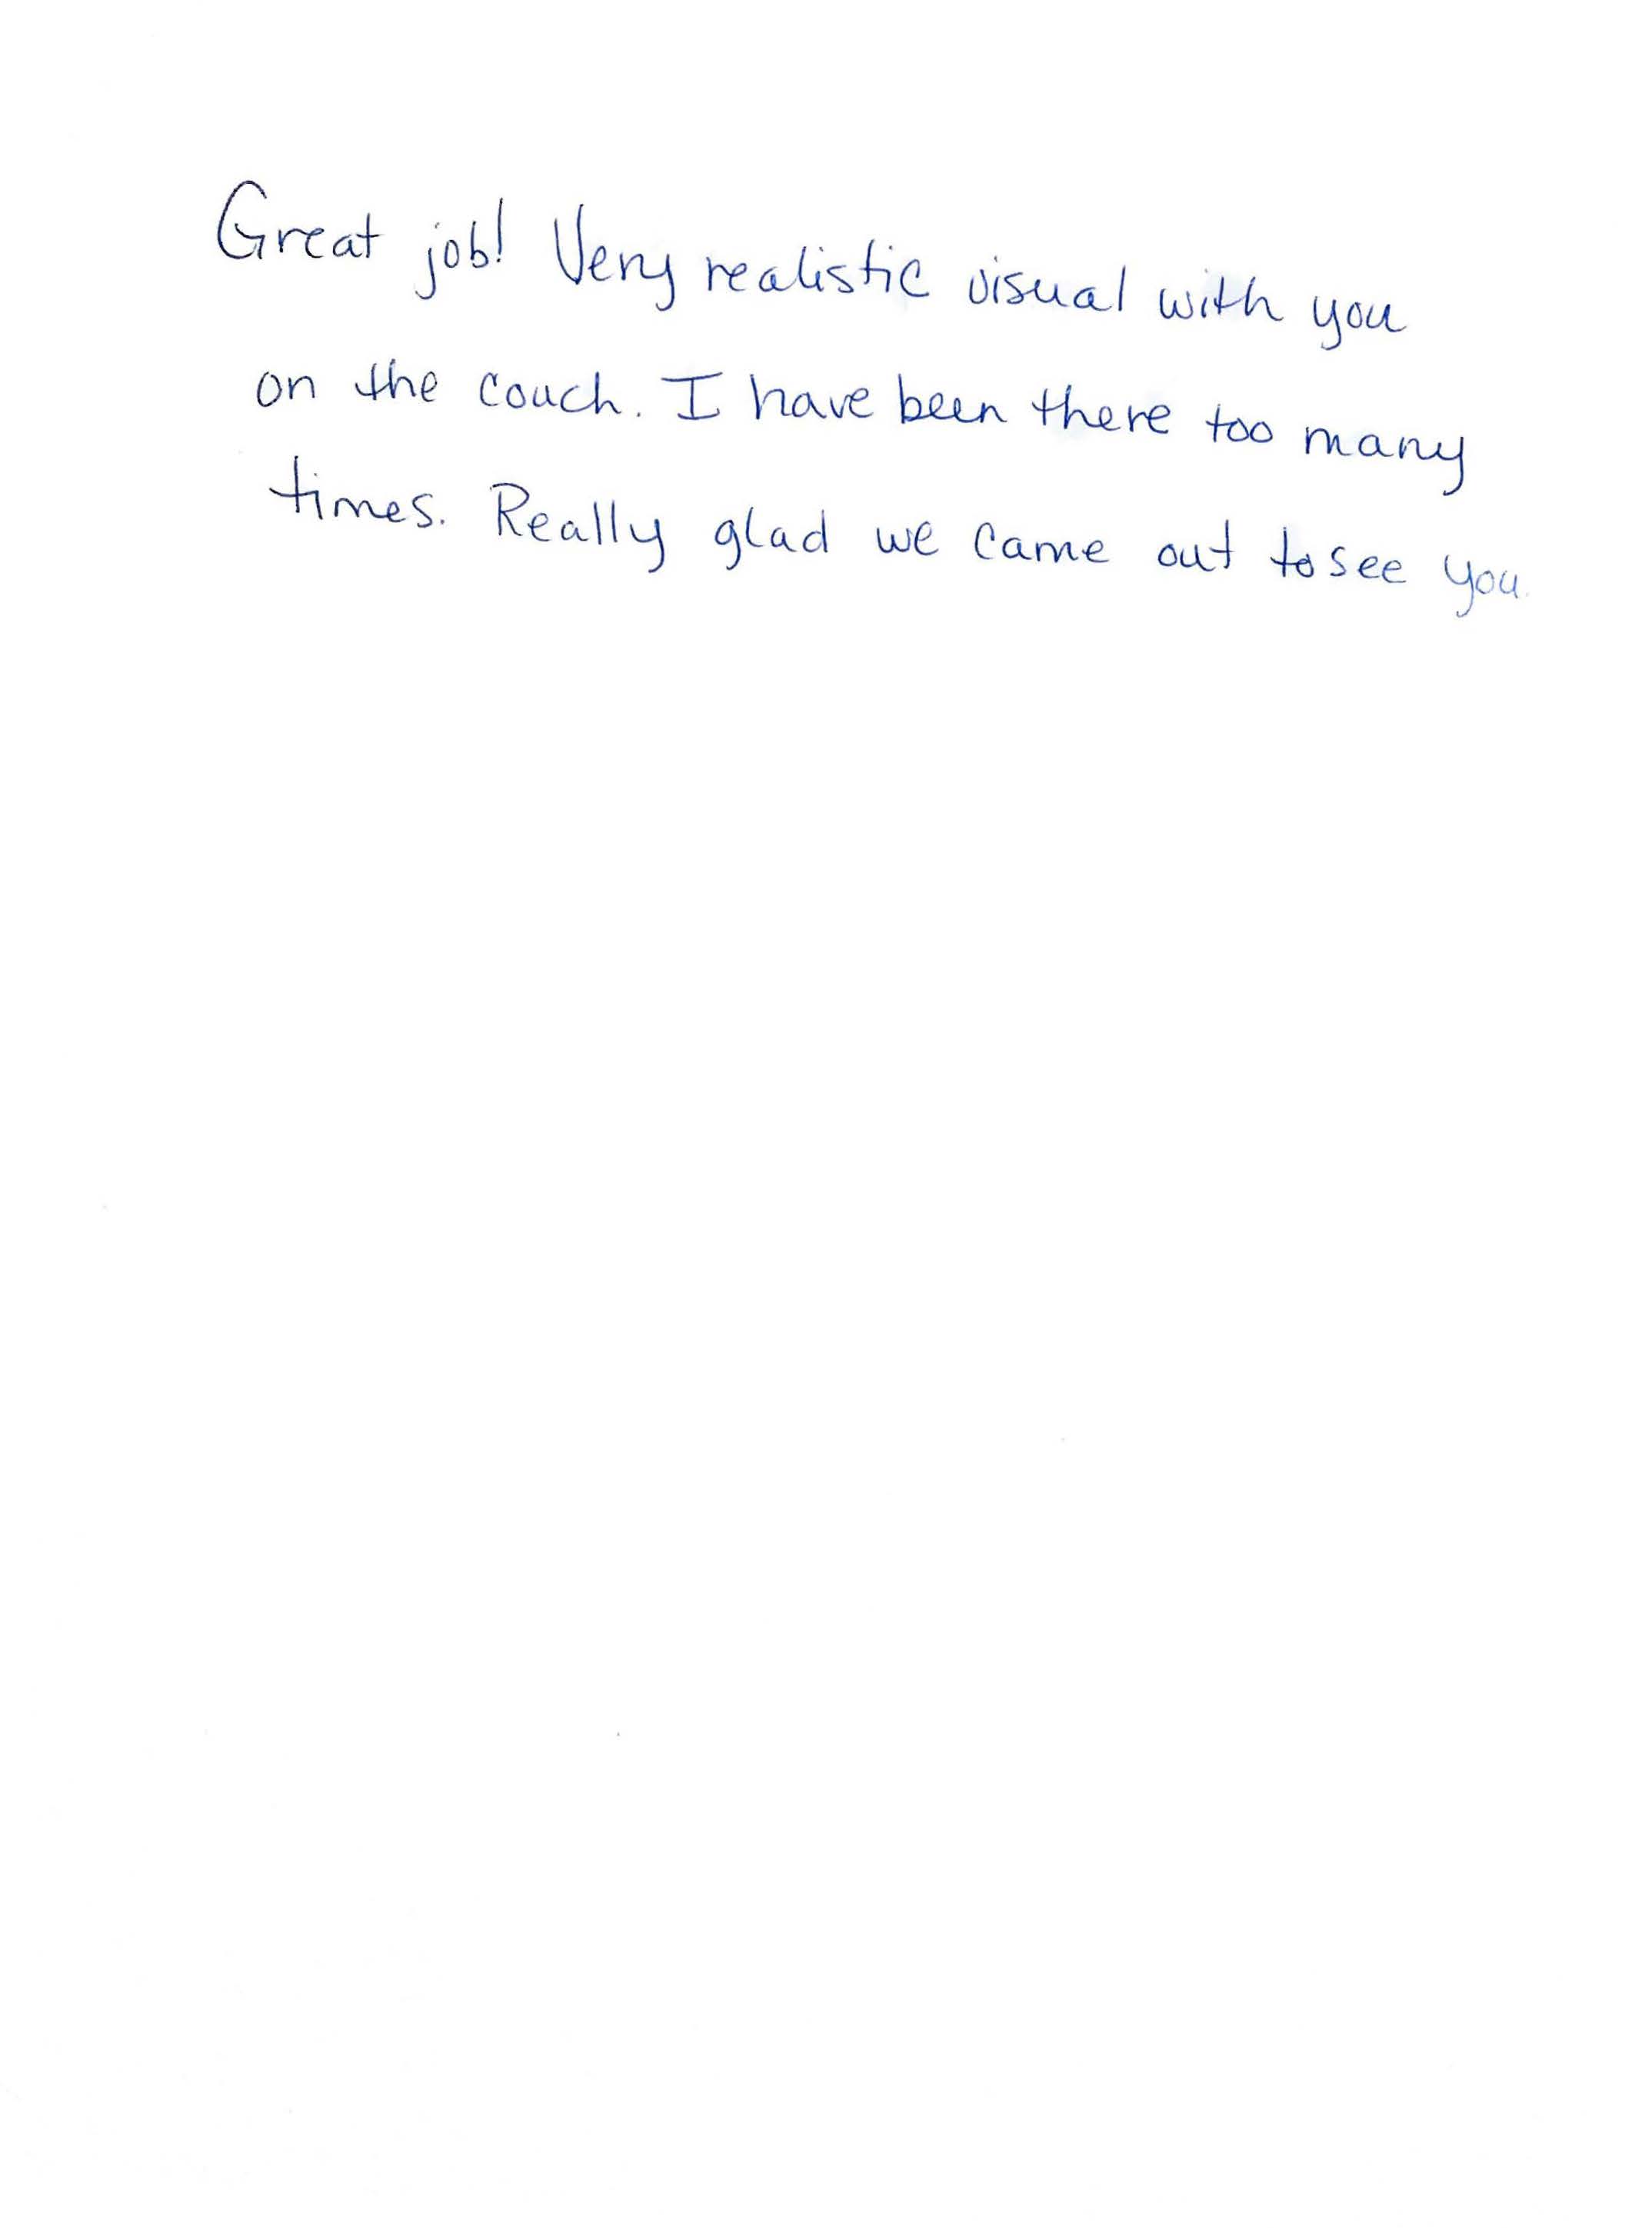 Great job! Very realistic visual with you
on the couch. I have been there too many
times. Really glad we came out to see you.